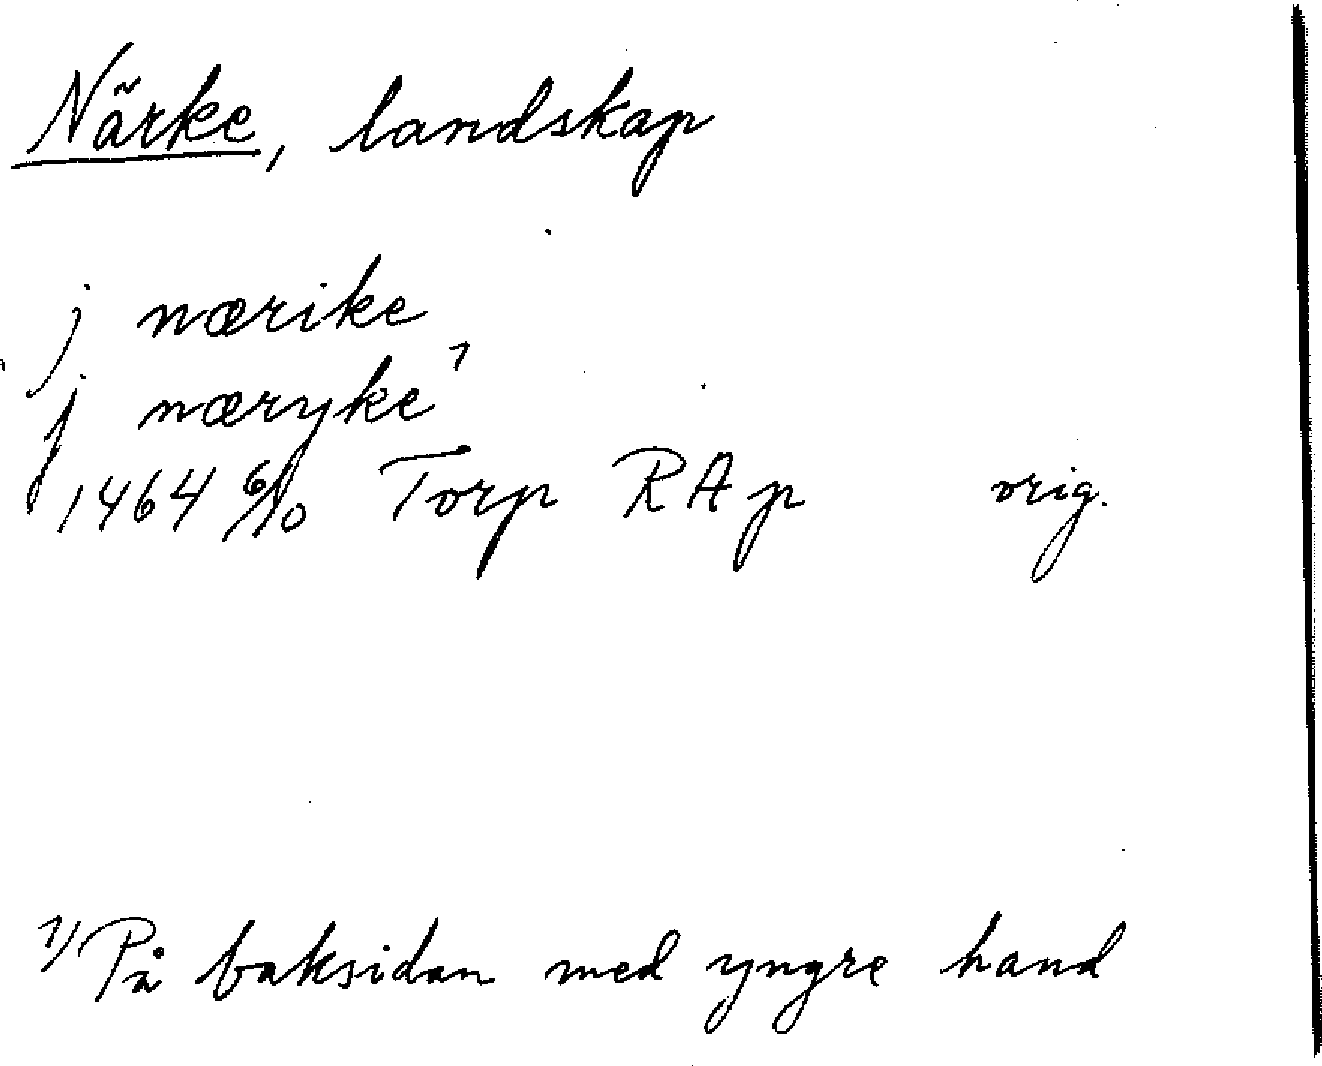 Närke, landskap
j nærike
j næryke¹
1464 6/10 Torp RAp orig.
¹) På baksidan med yngre hand